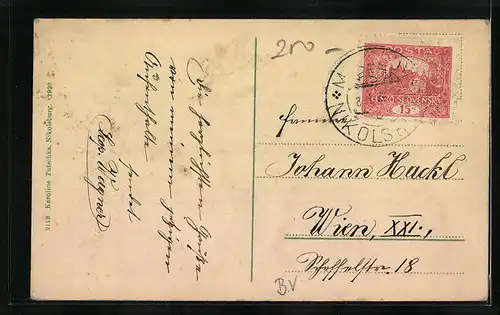 2113 Karoline Tutschka, Nikolsburg. 1920
Die herzlichsten Grüße
von meinem jetzigen
Aufenthalte
sendet
Wagner
200 -
POSTA
ČESKO-SLOVENSKÁ
15
NIKOLSB
Johann Hackl
Wien, XXI.,
Scheffelstr. 18
B.V